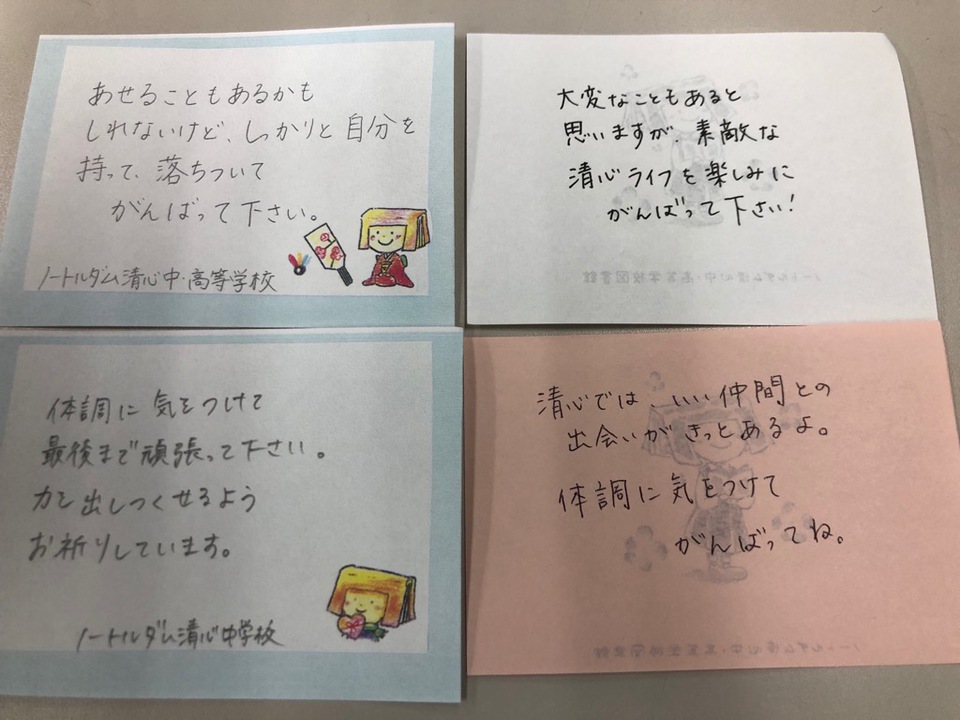 あせることもあるかも
しれないけど、しっかりと自分を
持って、落ちついて
がんばって下さい。
ノートルダム清心中・高等学校
大変なこともあると
思いますが、素敵な
清心ライフを楽しみに
がんばって下さい!
体調に気をつけて
最後まで頑張って下さい。
力を出しつくせるよう
お祈りしています。
ノートルダム清心中学校
清心では、いい仲間との
出会いがきっとあるよ。
体調に気をつけて
がんばってね。